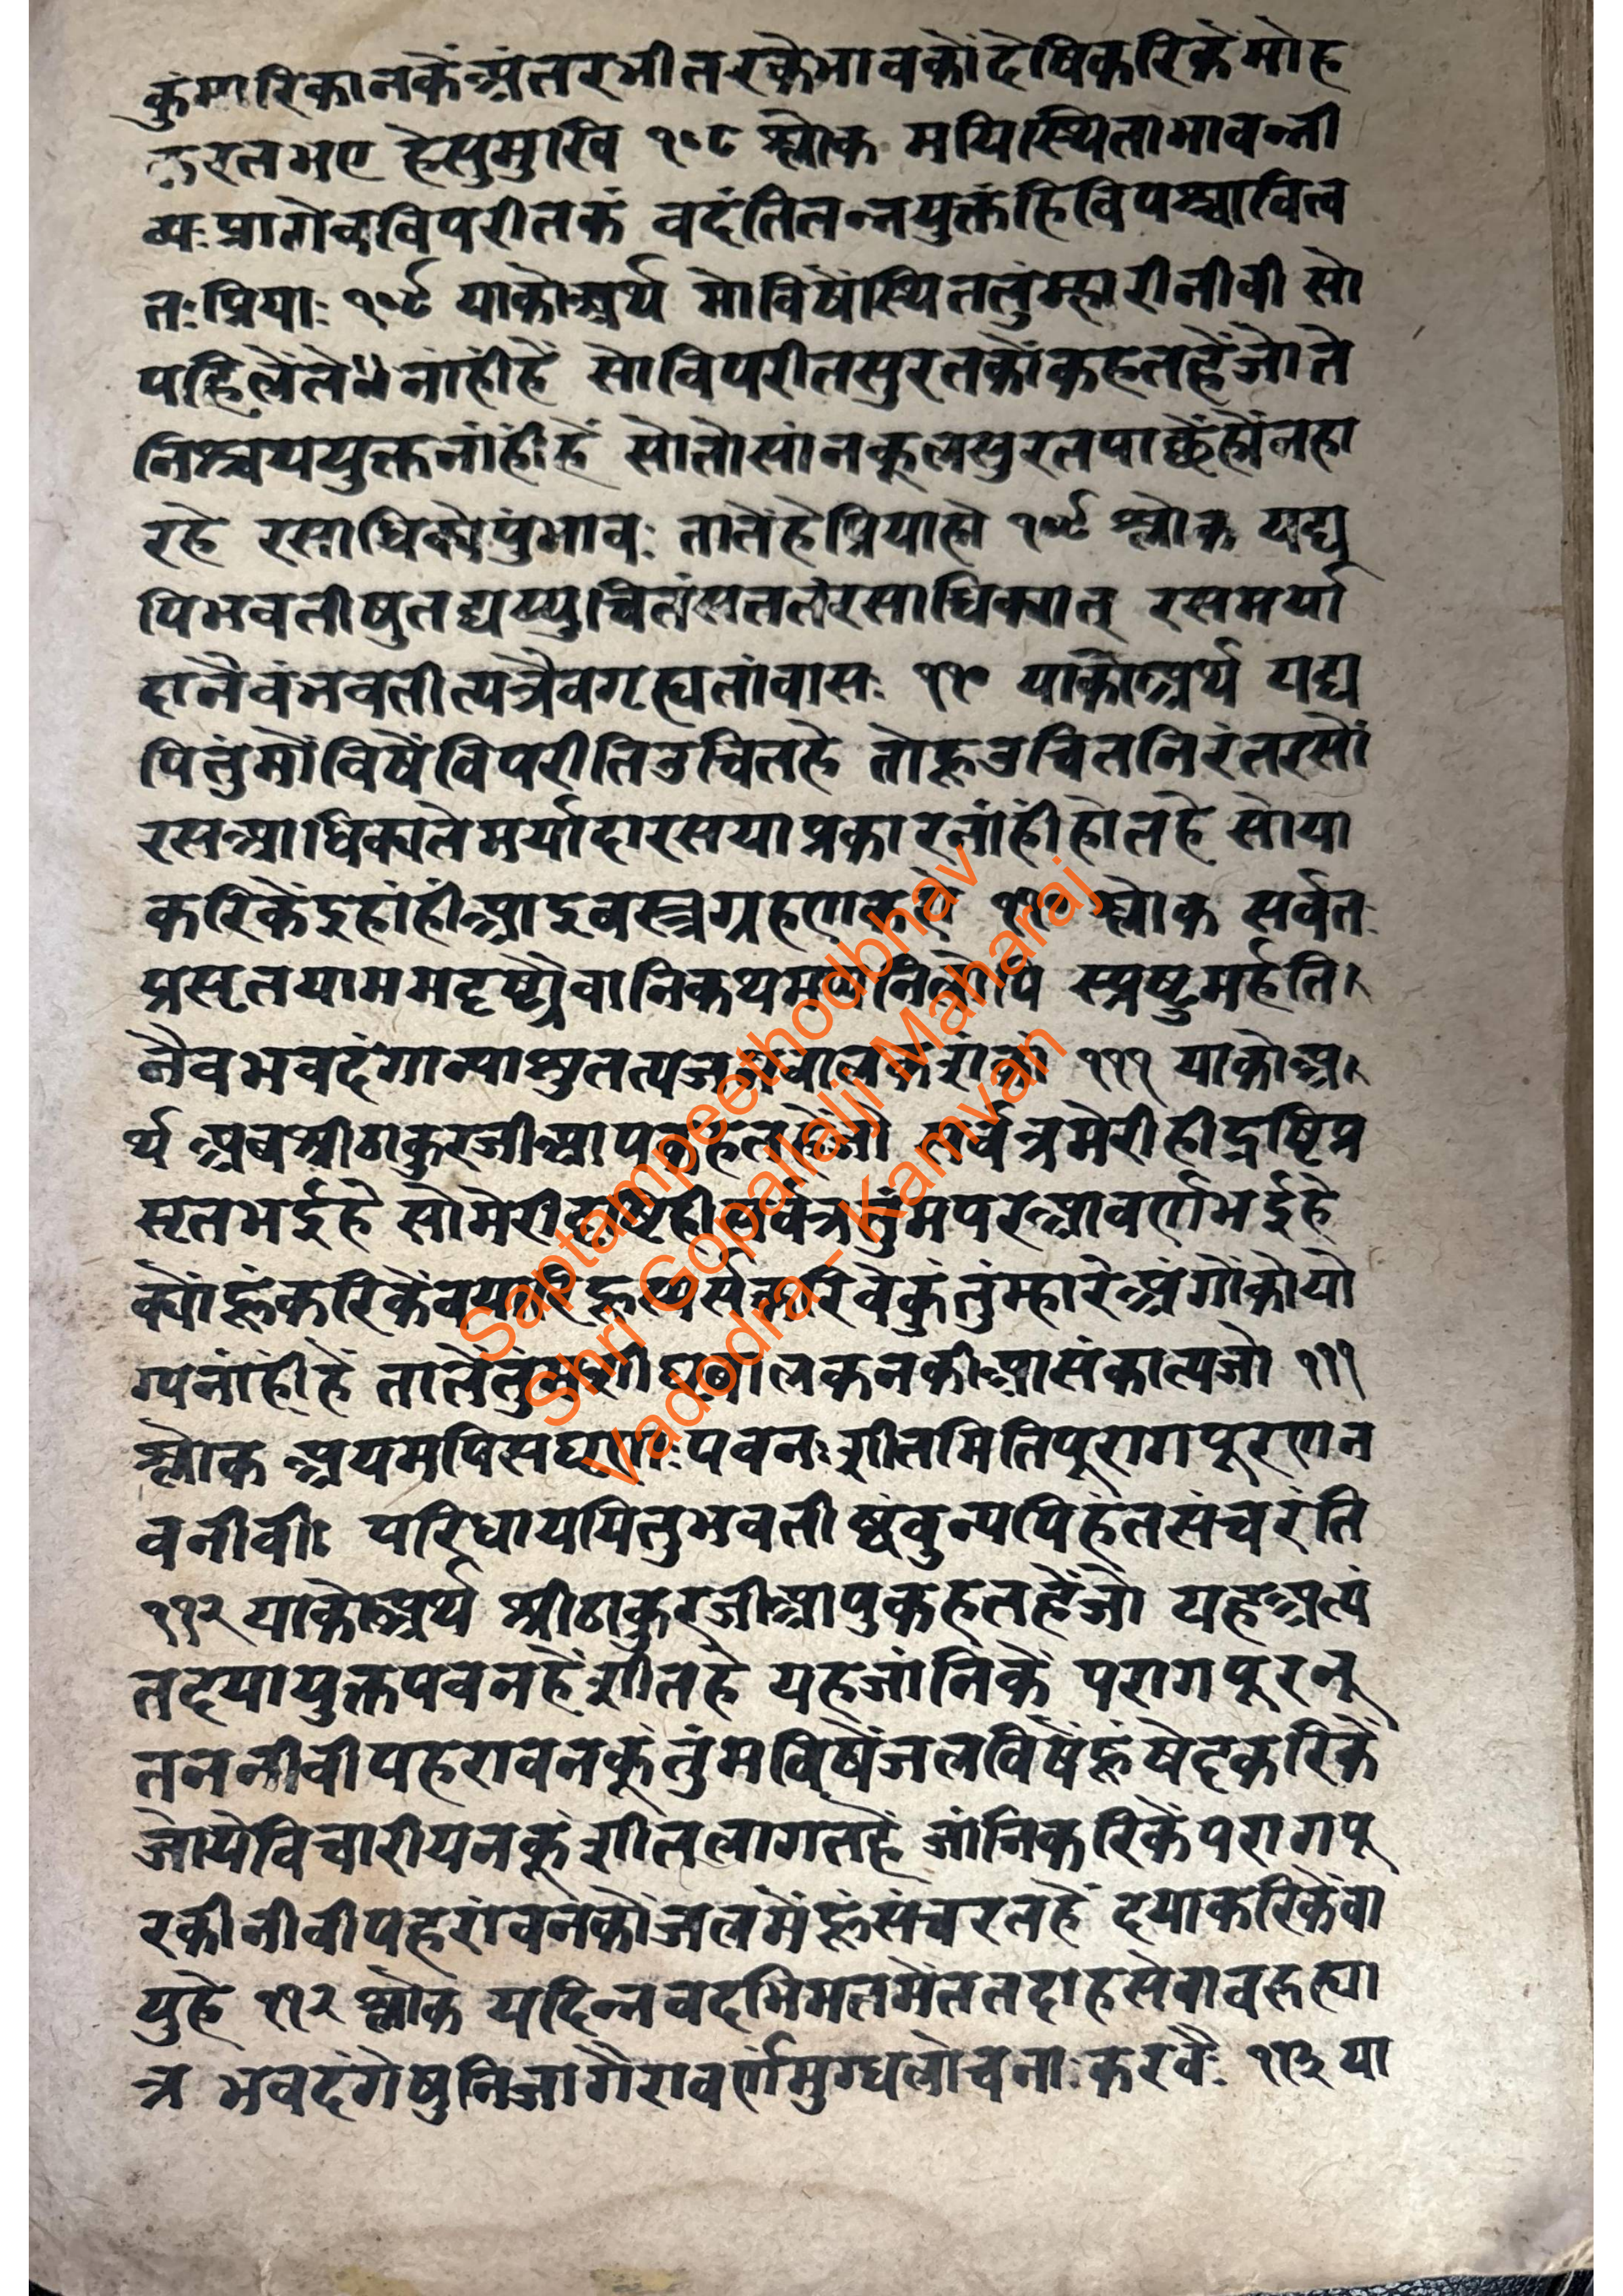 कुंमारिकानकेंअंतरभीतरकेभावकोंदेषिकरिकेंमोह
करतभए हेसुमुखि १०८ श्लोक मयिस्थिताभावन्नी
व्यःप्रागेवविपरीतकं वदंतितन्नयुक्तंहिविपश्चावित्व
तःप्रियाः १०९ याकोअर्थ मोविषेंस्थिततुंम्हारीनीवी सो
पहिलेंते नांहींहें सोविपरीतसुरतकोंकहतहेंजोते
निश्चययुक्तनांहींहें सोतोसांनकूलसुरतपाछेंहोंनहा
रहे रसाधिक्येपुंभावः तातेंहेप्रियाहो १०९ श्लोक यद्य
पिभवतीषुतद्यप्युचितंसततंरसाधिक्यात् रसमर्या
दानैवंभवतीत्यत्रैवगृह्यतांवासः ११० याकोअर्थ यद्य
पितुंमोंविषेंविपरीतिउचितहे तोहूउचितनिरंतरसों
रसआधिक्यतेमर्यादारसयाप्रकारनांहींहोतहे सोया
करिकेंइहांहींआइवस्त्रग्रहणकरो ११० श्लोक सर्वतः
प्रसृतयाममदृष्ट्यैवानिकथमप्यनिलोपि स्प्रष्टुमर्हति
नैवभवदंगान्याशुतत्यज १११ याकोअ
र्थ अबश्रीठाकुरजीआपकहतहेंजो सर्वत्रमेरीहीद्रष्टिप्र
सृतभईहे सोमेरीद्रष्टिहीसर्वत्रतुंमपरआवर्णभईहे
क्योंहूंकरिकेंवयारिहूस्पर्सकरिवेकुंतुंम्हारेअंगोंकोयो
ग्यनांहींहें तातेंतुंमशीघ्रवालकनकीआसंकात्यजो १११
श्लोक अयमपिसघृणःपवनःशीतमितिपुरागपूरणन
वनीवीः परिधाययितुभवतीष्वंवुन्यपिहंतसंचरंति
११२ याकोअर्थ श्रीठाकुरजीआपुकहतहेंजो यहअत्यं
तदयायुक्तपवनहेंशीतहे यहजांनिकें परागपूरनू
तननीवीपहरावनकूंतुंमविषेंजलविषेंहूंषेदकरिकें
जोयेविचारीयनकूंशीतलागतहें जांनिकरिकेंपरागपू
रकीनीवीपहेरांवनकोंजलमेंहूंसंचरतहें दयाकरिकेंवा
युहे ११२ श्लोक यदिन्नवदभिमतमेततदाहसेवावहृत्या
त्र भवदंगेषुनिजांगैरावर्णंमुग्धलोचनाःकरवै ११३ या
Saptampeethodbhav
Shri Gopallalji Maharaj
Vadodra - Kamvan